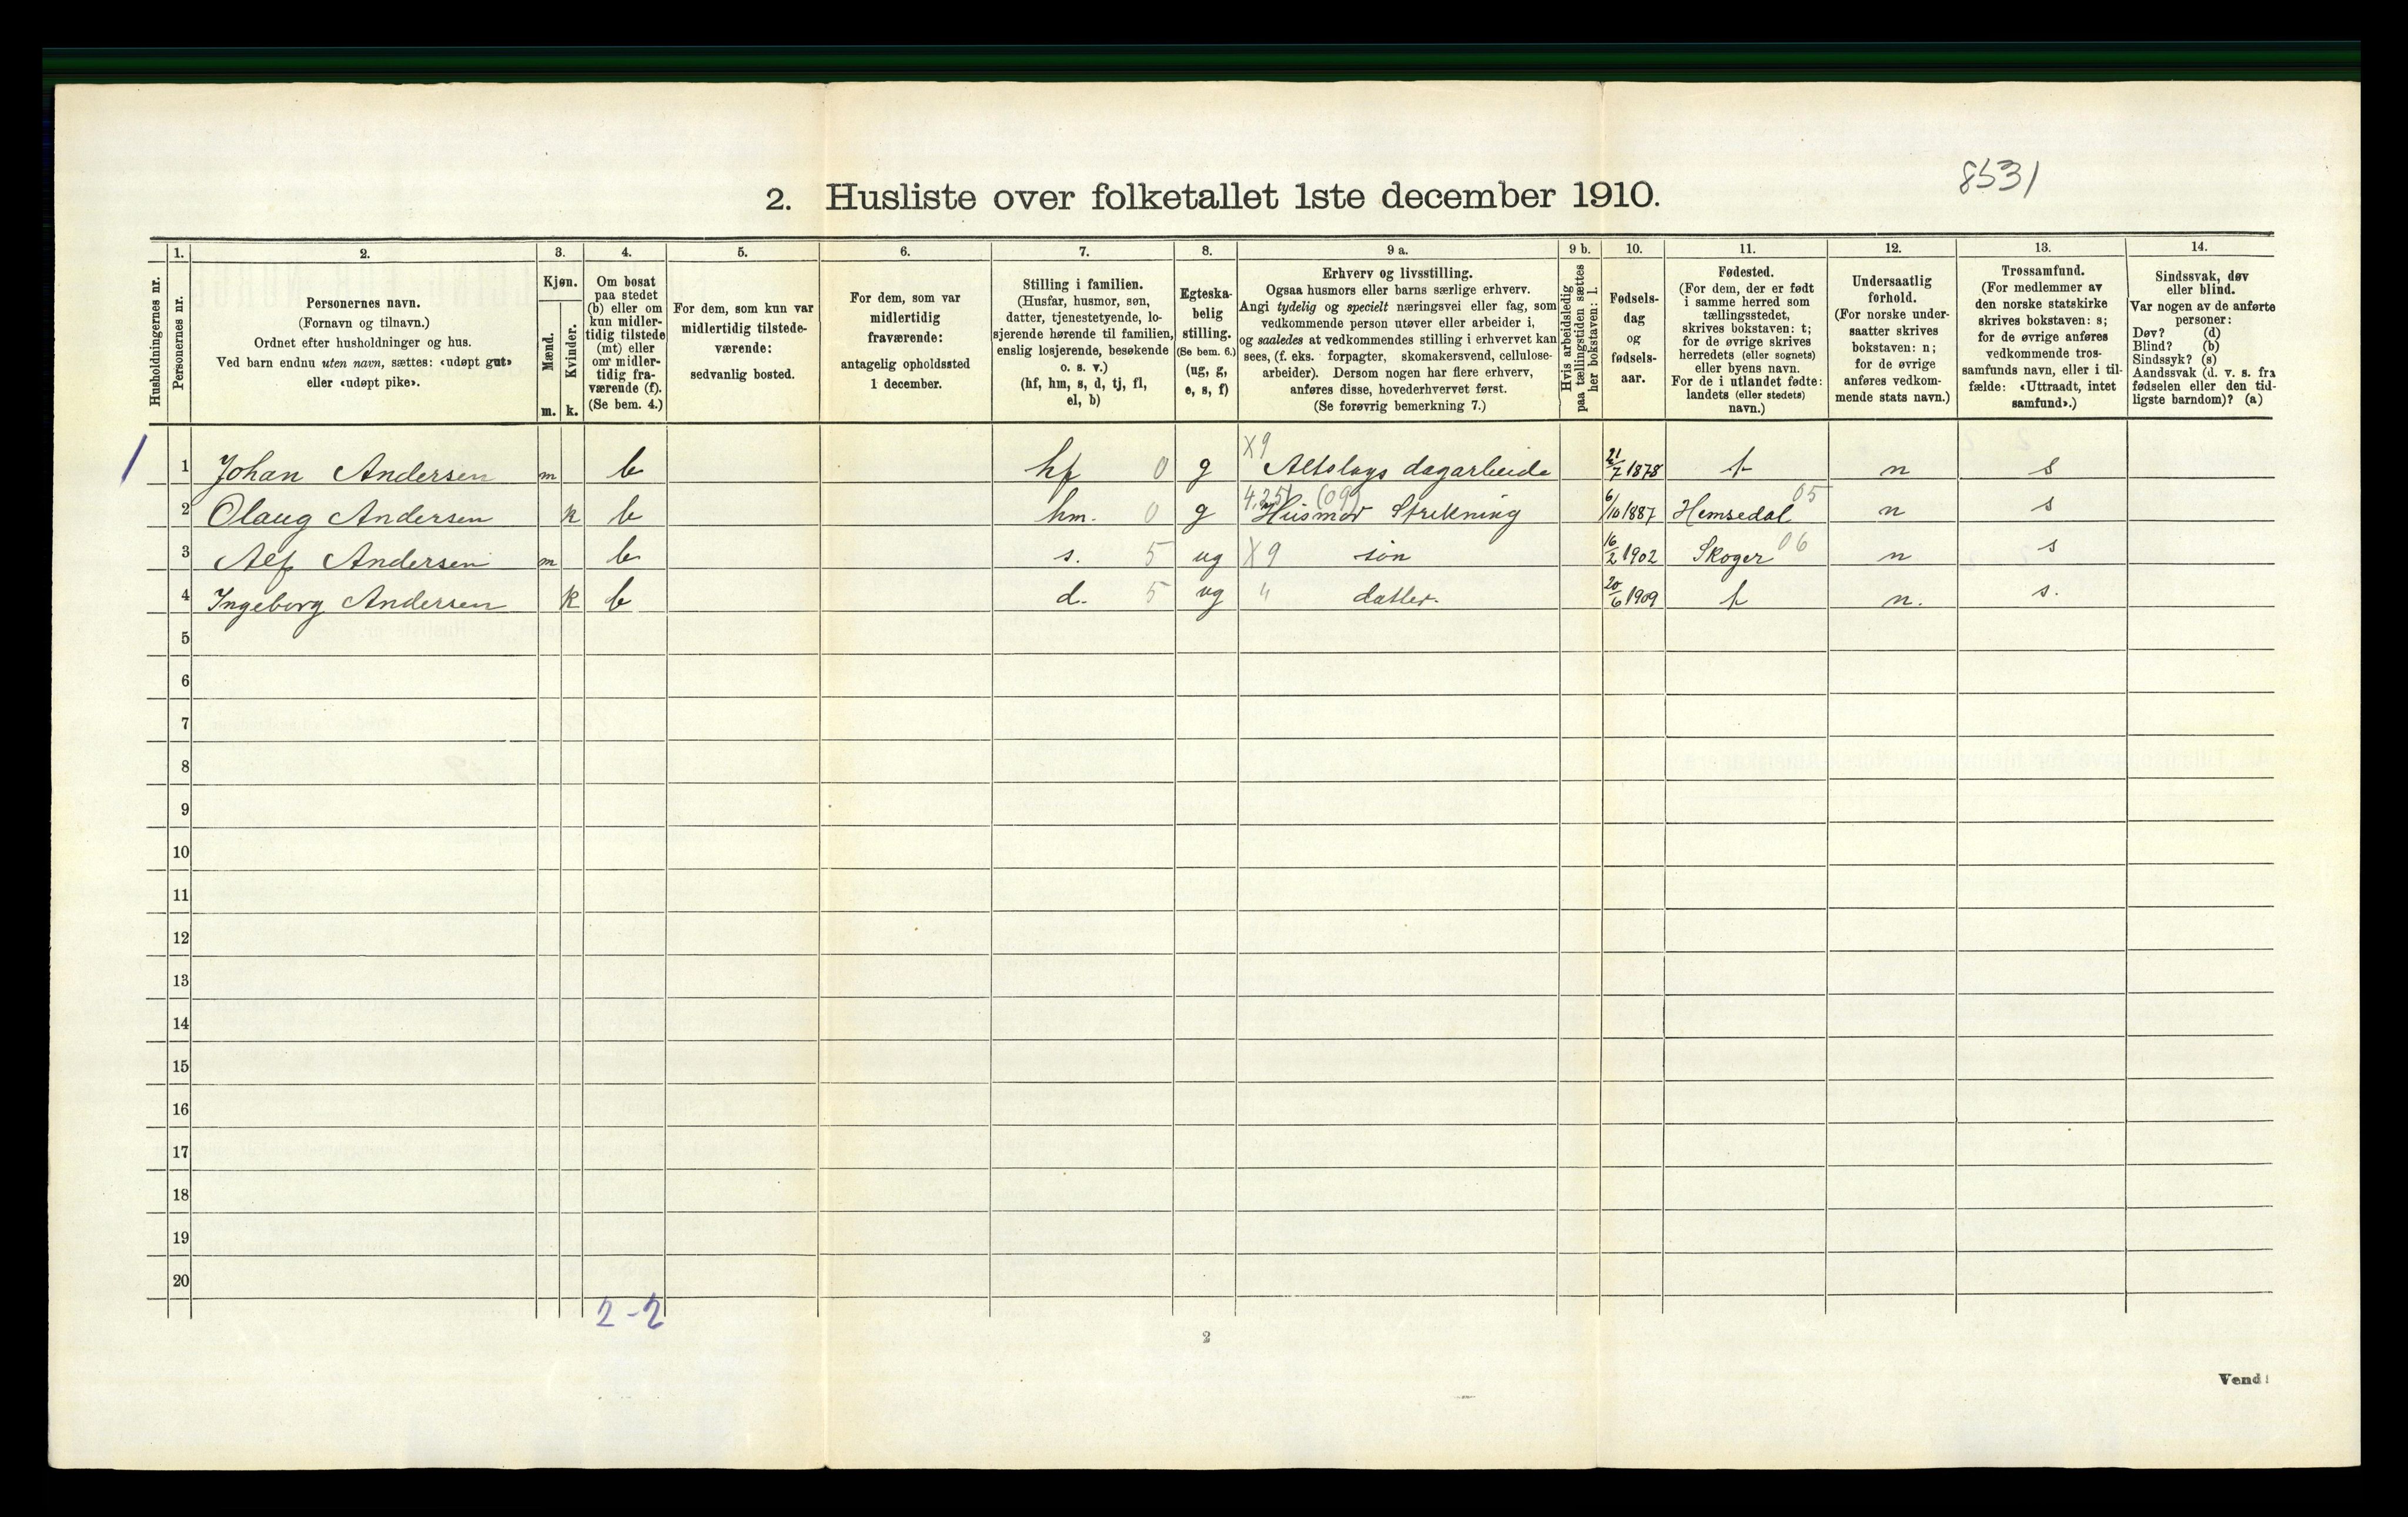 8531
2. Husliste over folketallet 1ste december 1910.
Husholdningernes nr.
1.
Personernes nr.
2.
Personernes navn.
(Fornavn og tilnavn.)
Ordnet efter husholdninger og hus.
Ved barn endnu uten navn, sættes: «udøpt gut»
eller «udøpt pike».
3.
Kjøn.
Mænd.
Kvinder.
m. k.
4.
Om bosat
paa stedet
(b) eller om
kun midler-
tidig tilstede
(mt) eller
om midler-
tidig fra-
værende (f).
(Se bem. 4.)
5.
For dem, som kun var
midlertidig tilstede-
værende:
sedvanlig bosted.
6.
For dem, som var
midlertidig
fraværende:
antagelig opholdssted
1 december.
7.
Stilling i familien.
(Husfar, husmor, søn,
datter, tjenestetyende, lo-
sjerende hørende til familien,
enslig losjerende, besøkende
o. s. v.)
(hf, hm, s, d, tj, fl,
el, b)
8.
Egteska-
belig
stilling.
(Se bem. 6.)
(ug, g,
e, s, f)
9 a.
Erhverv og livsstilling.
Ogsaa husmors eller barns særlige erhverv.
Angi tydelig og specielt næringsvei eller fag, som
vedkommende person utøver eller arbeider i,
og saaledes at vedkommendes stilling i erhvervet kan
sees, (f. eks. forpagter, skomakersvend, cellulose-
arbeider). Dersom nogen har flere erhverv,
anføres disse, hovederhvervet først.
(Se forøvrig bemerkning 7.)
9 b.
Hvis arbeidsledig
paa tællingstiden sættes
her bokstaven: l.
10.
Fødsels-
dag
og
fødsels-
aar.
11.
Fødested.
(For dem, der er født
i samme herred som
tællingsstedet,
skrives bokstaven: t;
for de øvrige skrives
herredets (eller sognets)
eller byens navn.
For de i utlandet fødte:
landets (eller stedets)
navn.)
12.
Undersaatlig
forhold.
(For norske under-
saatter skrives
bokstaven: n;
for de øvrige
anføres vedkom-
mende stats navn.)
13.
Trossamfund.
(For medlemmer av
den norske statskirke
skrives bokstaven: s;
for de øvrige anføres
vedkommende tros-
samfunds navn, eller i til-
fælde: «Uttraadt, intet
samfund».)
14.
Sindssvak, døv
eller blind.
Var nogen av de anførte
personer:
Døv? (d)
Blind? (b)
Sindssyk? (s)
Aandssvak (d. v. s. fra
fødselen eller den tid-
ligste barndom)? (a)
1 Johan Andersen m b hf 0 g X9 Altslags dagarbeide 21/7 1878 t n s
2 Olaug Andersen k b hm. 0 g (09) Husmor Strikning 6/10 1887 Hemsedal 05 n s
3 Alf Andersen m b s. 5 ug X9 søn 16/2 1902 Skoger 06 n s
4 Ingeborg Andersen k b d. 5 ug " datter. 20/6 1909 t n. s.
5
6
7
8
9
10
11
12
13
14
15
16
17
18
19
20
2-2
2
Vend!